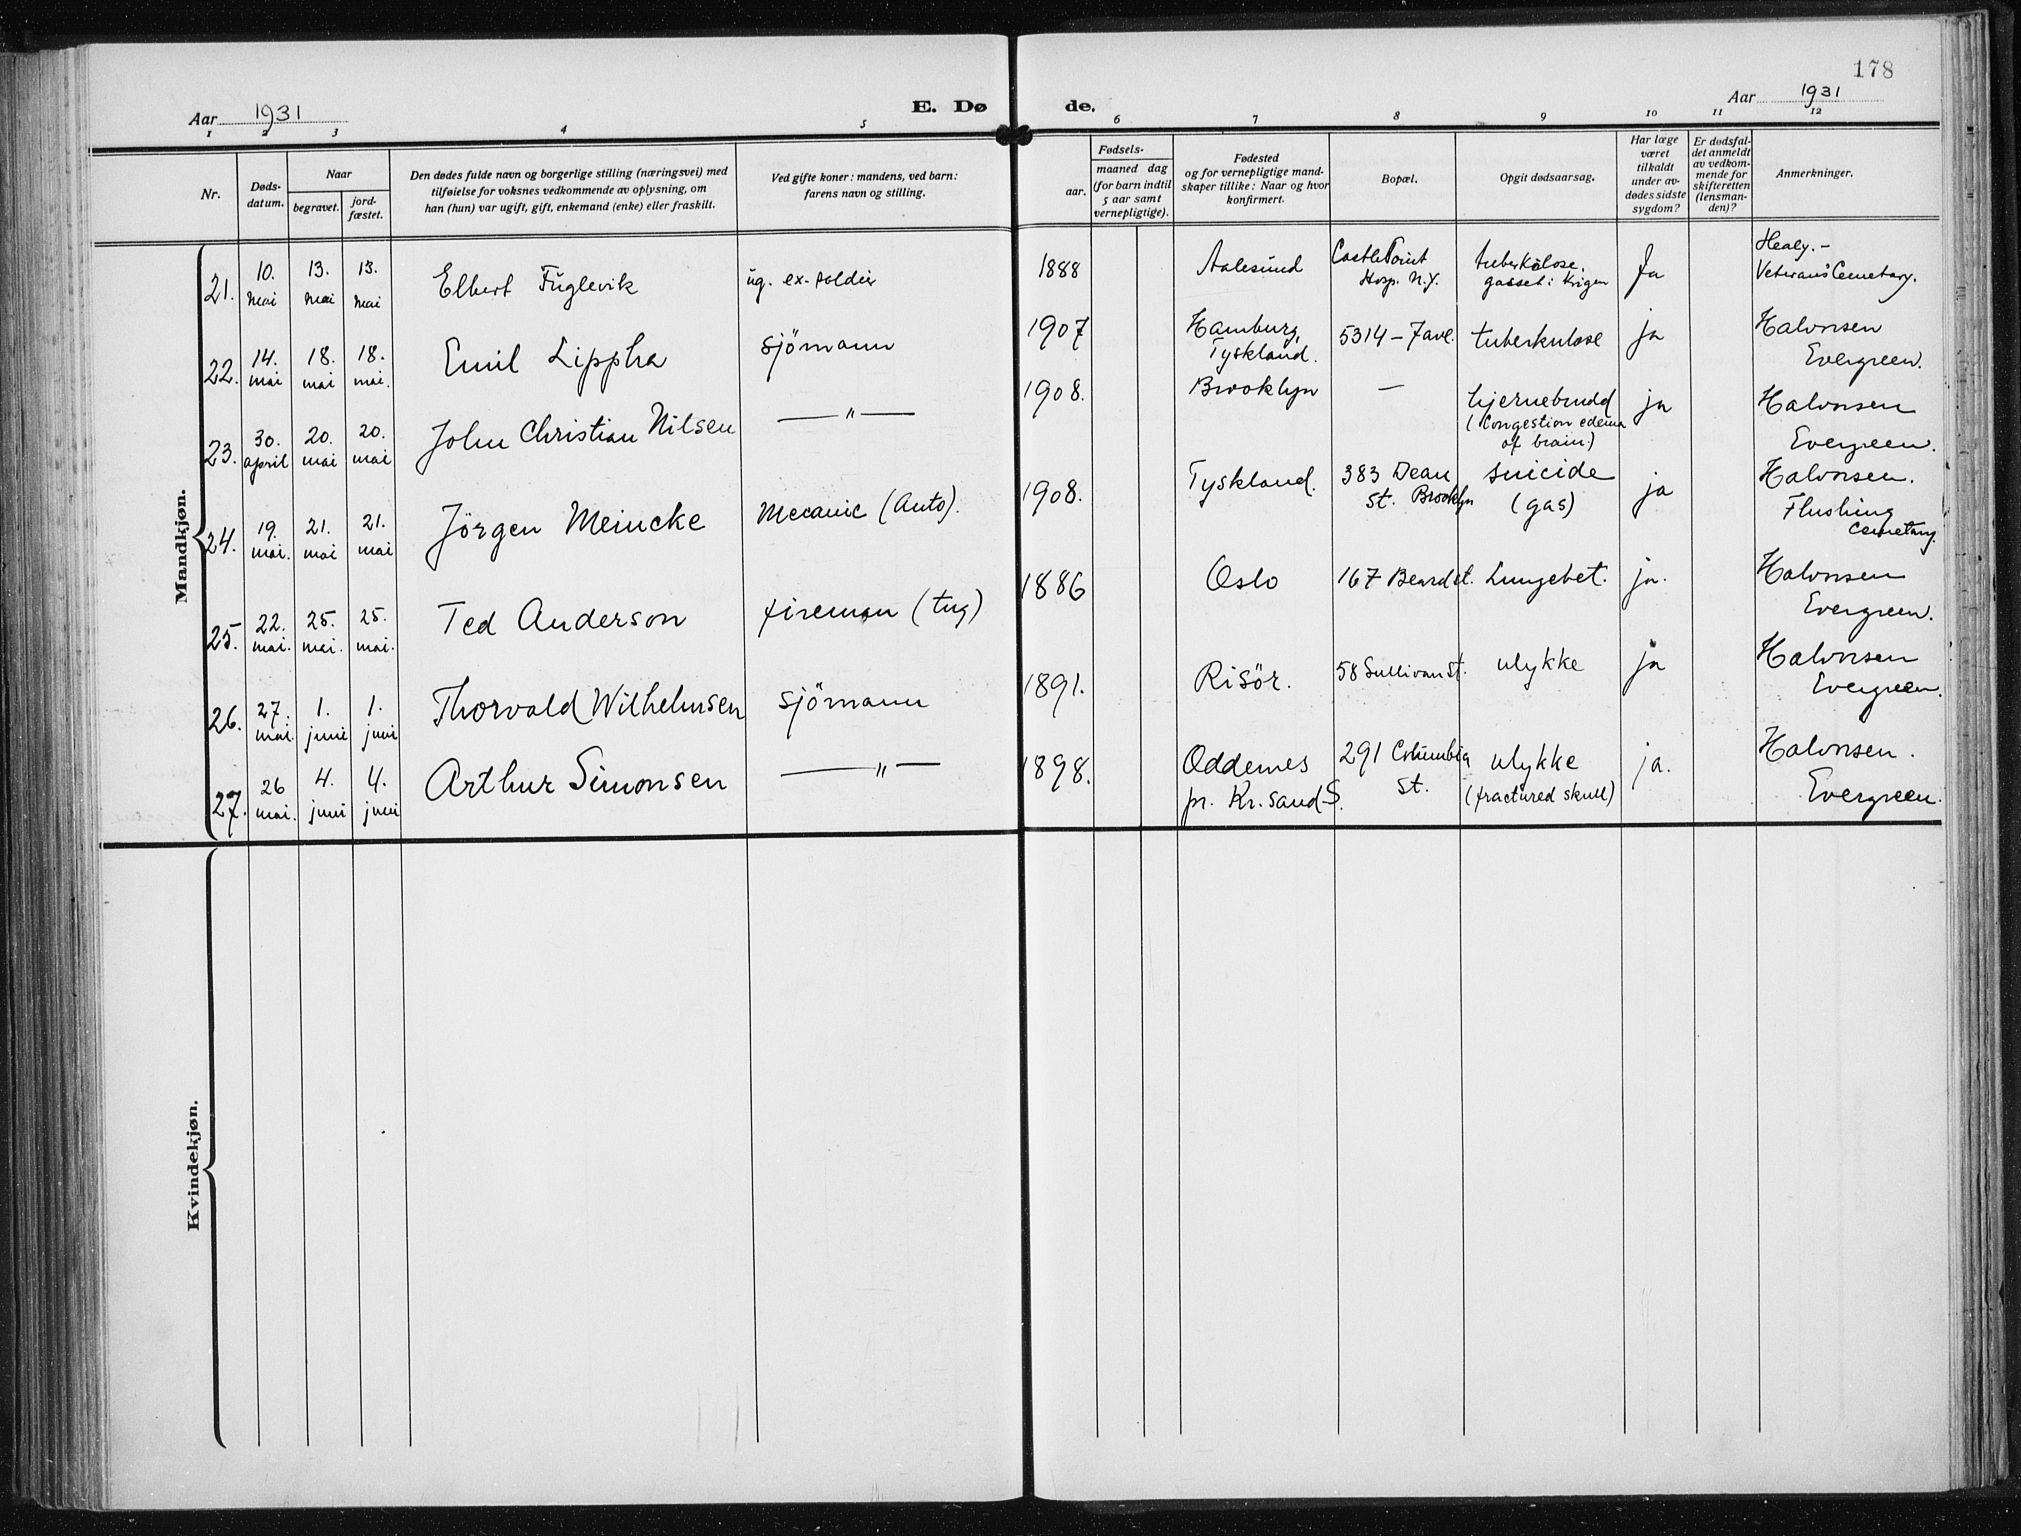 178
Aar 1931
E. Dø
de.
Aar 1931
1 2 3 4 5 6 7 8 9 10 11 12
Nr.
Døds-
datum.
Naar
begravet.
jord-
fæstet.
Den dødes fulde navn og borgerlige stilling (næringsvei) med
tilføielse for voksnes vedkommende av oplysning, om
han (hun) var ugift, gift, enkemand (enke) eller fraskilt.
Ved gifte koner: mandens, ved barn:
farens navn og stilling.
Fødsels-
aar.
maaned dag
(for barn indtil
5 aar samt
vernepligtige).
Fødested
og for vernepligtige mand-
skaper tillike: Naar og hvor
konfirmert.
Bopæl.
Opgit dødsaarsag.
Har læge
været
tilkaldt
under av-
dødes sidste
sygdom?
Er dødsfal-
det anmeldt
av vedkom-
mende for
skifteretten
(lensman-
den)?
Anmerkninger.
Mandkjøn.
21. 10. mai 13. mai 13. mai Elbert Fuglevik ug. ex-soldier 1888 Aalesund Castle Point
Hosp. N.Y. tuberkulose.
gasset i krigen Ja Healy.-
Veterans' Cemetary.
22. 14. mai 18. mai 18. mai. Emil Lippha sjömann 1907 Hamburg,
Tyskland. 5314 – 7 ave. tuberkulose ja Halvorsen
Evergreen.
23. 30. april 20. mai 20. mai John Christian Nilsen — " — 1908. Brooklyn — hjerneblødd
(Congestion edema
of brain.) ja Halvorsen
Evergreen.
24. 19. mai. 21. mai 21. mai Jörgen Meincke Mecanic (Auto). 1908. Tyskland. 383 Dean
St. Brooklyn suicide
(gas) ja Halvorsen.
Flushing
Cemetary.
25. 22. mai. 25. mai. 25. mai. Ted Anderson fireman (tug) 1886 Oslo 167 Beard st. Lungebet. ja. Halvorsen
Evergreen.
26. 27. mai. 1. juni 1. juni Thorvald Wilhelmsen sjömann 1891. Risör. 58 Sullivan st. ulykke ja Halvorsen
Evergreen.
27. 26 mai. 4. juni 4. juni Arthur Simonsen — " — 1898. Oddernes
pr. Kr.sand S. 291 Columbia
St. ulykke
(fractured skull) ja. Halvorsen.
Evergreen.
Kvindekjøn.